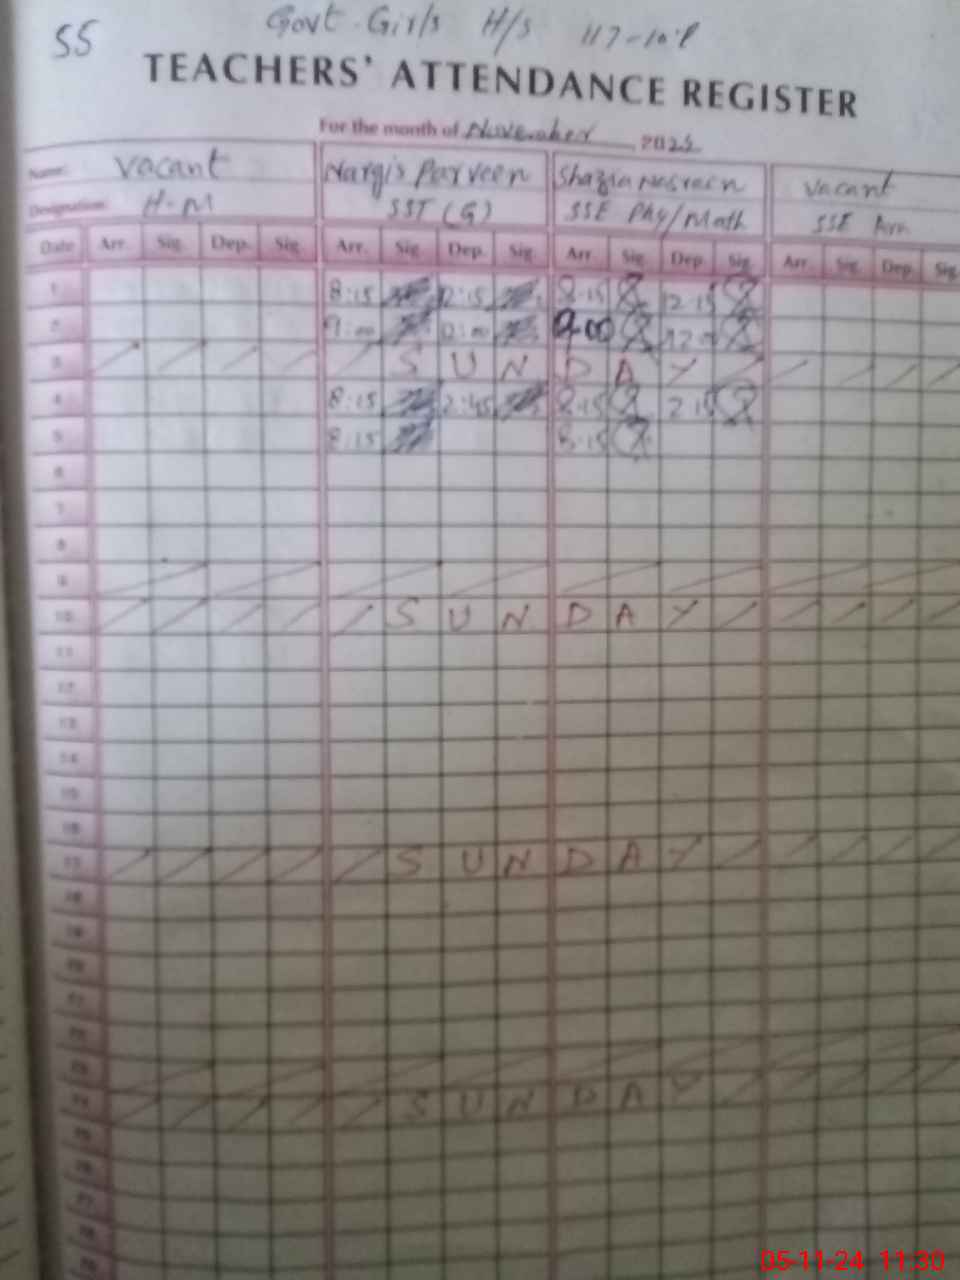 55
Govt. Girls H/S 117-10.R
TEACHERS' ATTENDANCE REGISTER
For the month of November 2024
Name: Vacant Nargis Parveen Shazia Nasreen Vacant
Designation: H-M SST (G) SSE Phy/Math SSE
Date Arr. Sig. Dep. Sig. Arr. Sig. Dep. Sig. Arr. Sig. Dep. Sig. Arr. Sig. Dep. Sig.
1 8:15 12:15 8:15 12:15
2 9:00 12:00 9:00 12:00
3 S U N D A Y
4 8:15 2:45 8:15 2:15
5 8:15 8:15
6
7
8
9
10 S U N D A Y
11
12
13
14
15
16
17 S U N D A Y
18
19
20
21
22
23
24 S U N D A Y
25
26
27
28
29
05-11-24 11:30